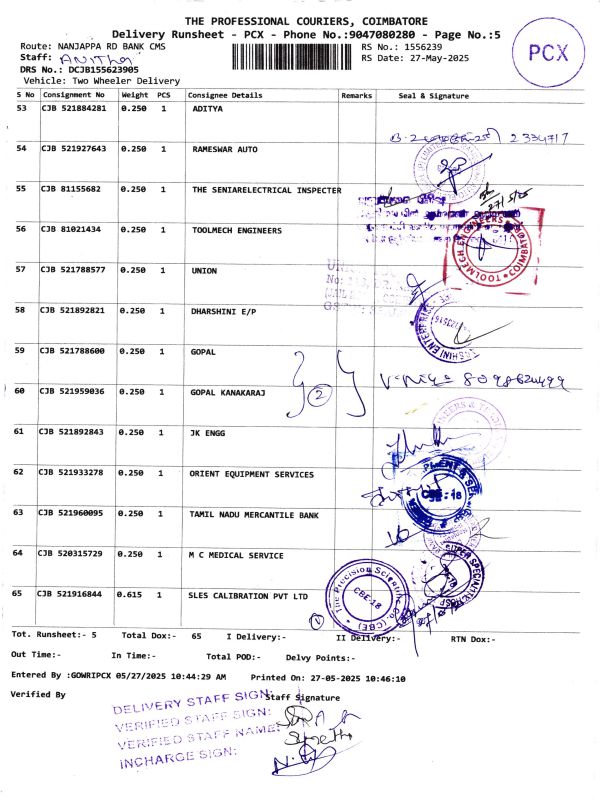 THE PROFESSIONAL COURIERS, COIMBATORE
Delivery Runsheet - PCX - Phone No.:9047080280 - Page No.:5
Route: NANJAPPA RD BANK CMS
RS No.: 1556239
Staff: Anitha
RS Date: 27-May-2025
PCX
DRS No.: DCJB155623905
Vehicle: Two Wheeler Delivery
S No Consignment No Weight PCS Consignee Details Remarks Seal & Signature
53 CJB 521884281 0.250 1 ADITYA
2334717
54 CJB 521927643 0.250 1 RAMESWAR AUTO
55 CJB 81155682 0.250 1 THE SENIARELECTRICAL INSPECTER
27/5/25
56 CJB 81021434 0.250 1 TOOLMECH ENGINEERS
TOOLMECH ENGINEERS COIMBATORE
57 CJB 521788577 0.250 1 UNION
58 CJB 521892821 0.250 1 DHARSHINI E/P
59 CJB 521788600 0.250 1 GOPAL
2
60 CJB 521959036 0.250 1 GOPAL KANAKARAJ
61 CJB 521892843 0.250 1 JK ENGG
62 CJB 521933278 0.250 1 ORIENT EQUIPMENT SERVICES
CBE-18
63 CJB 521960095 0.250 1 TAMIL NADU MERCANTILE BANK
64 CJB 520315729 0.250 1 M C MEDICAL SERVICE
65 CJB 521916844 0.615 1 SLES CALIBRATION PVT LTD
The Precision Scientific Co. (CBE)
CBE-18
Tot. Runsheet:- 5 Total Dox:- 65 I Delivery:- II Delivery:- RTN Dox:-
Out Time:- In Time:- Total POD:- Delvy Points:-
Entered By :GOWRIPCX 05/27/2025 10:44:29 AM Printed On: 27-05-2025 10:46:10
Verified By Staff Signature
DELIVERY STAFF SIGN:
VERIFIED STAFF SIGN:
VERIFIED STAFF NAME:
INCHARGE SIGN: